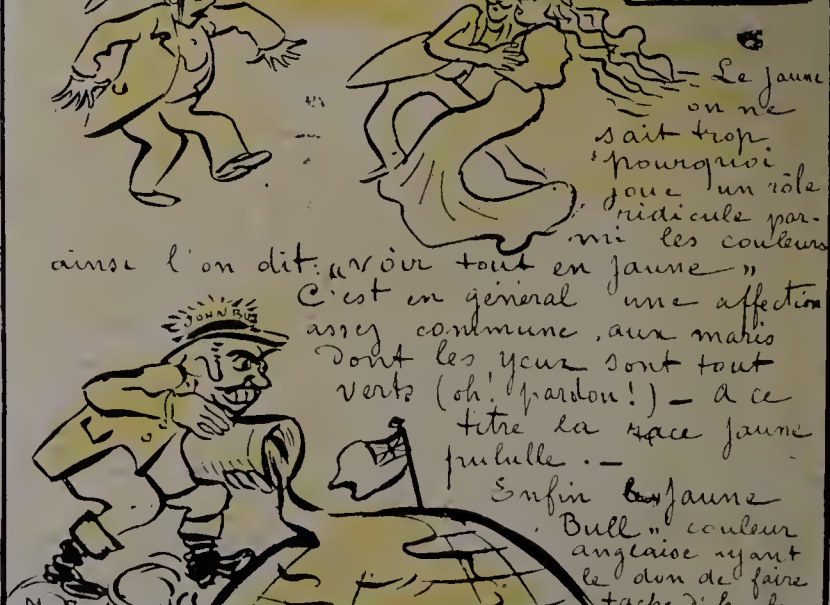 Le jaune
on ne
sait trop
pourquoi
joue un rôle
ridicule par-
mi les couleurs
ainsi l'on dit: „voir tout en jaune"
C'est en général une affection
assez commune, aux maris
Dont les yeux sont tout
verts (oh! pardon!) — A ce
titre la race jaune
pululle. —
JOHN BULL
Enfin le „Jaune
Bull" couleur
anglaise ayant
le don de faire
tache